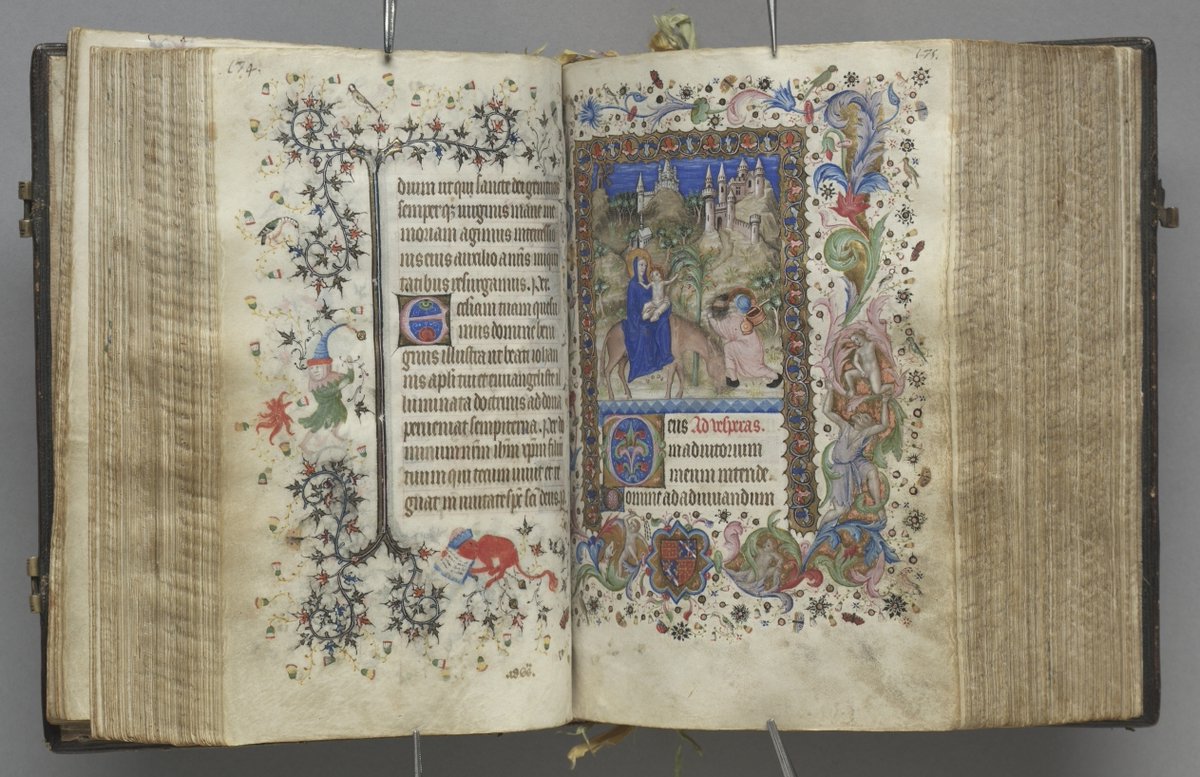 674.
dium ut qui sancte dei genitricis
semperq3 uirginis marie me
moriam agimus intercessio
nis eius auxilio a nr̄is iniqui
tatibus resurgamus. Per
Ecclesiam tuam quesu
mus domine beni
gnus illustra ut beati iohan
nis apl̄i tui et euuangeliste il
luminata doctrinis ad dona
perueniat sempiterna. Per do
minum nr̄m ih̄m xp̄m filium
tuum qui tecum uiuit et re
gnat in unitate sp̄c sc̄i deus. p
675.
Deus Ad vesperas.
in adiutorium
meum intende.
Domine ad adiuuandum